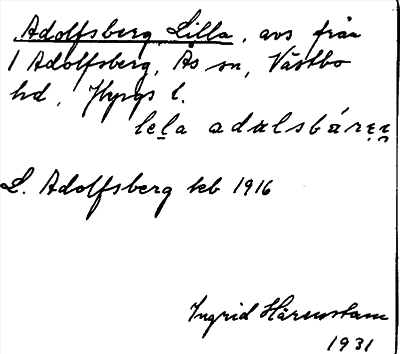 Adolfsberg Lilla, avs från
1 Adolfsberg, Ås sn, Västbo
hd, l.
lela adalsbáren
L. Adolfsberg kb 1916
Ingrid Härenstam
1931